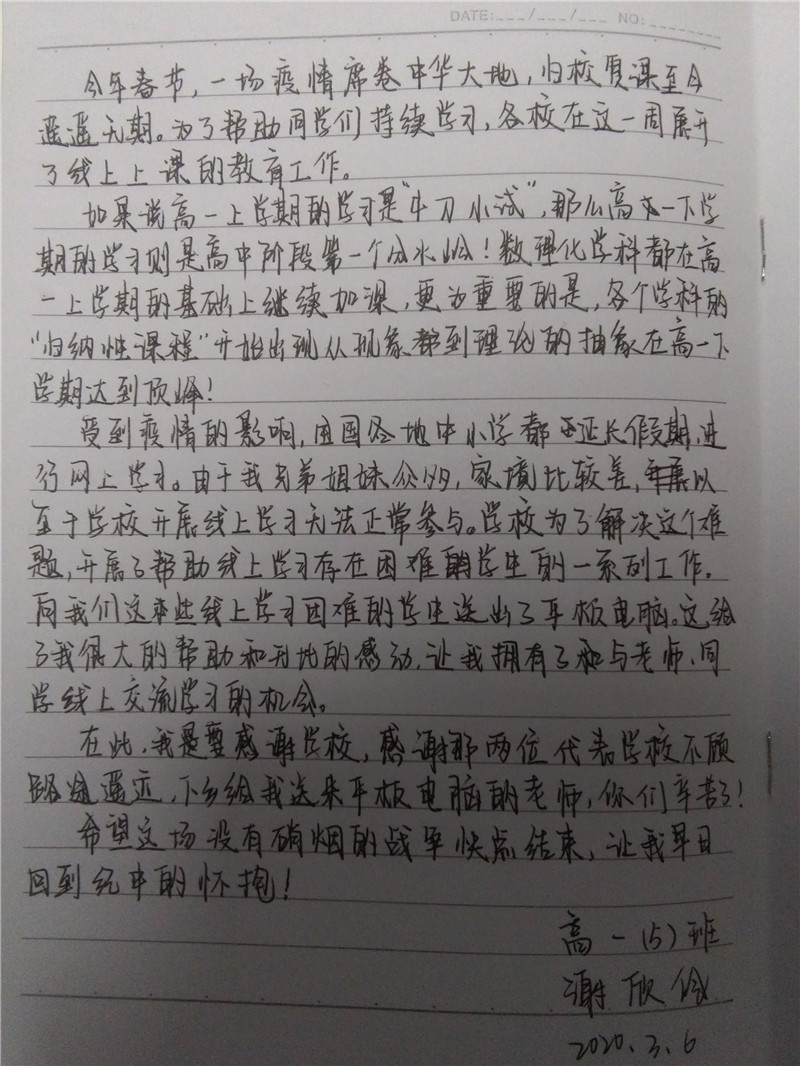 DATE:___/___/___ NO:______
今年春节，一场疫情席卷中华大地，归校复课至今
遥遥无期。为了帮助同学们持续学习，各校在这一周展开
了线上上课的教育工作。
如果说高一上学期的学习是“牛刀小试”，那么高一下学
期的学习则是高中阶段第一个分水岭！数理化学科都在高
一上学期的基础上继续加课，更为重要的是，各个学科的
“归纳性课程”开始出现从现象都到理论的抽象在高一下
学期达到顶峰！
受到疫情的影响，全国各地中小学都延长假期，进
行网上学习。由于我兄弟姐妹众多，家境比较差，以
至于学校开展线上学习无法正常参与。学校为了解决这个难
题，开展了帮助线上学习存在困难的学生的一系列工作。
向我们这些线上学习困难的学生送出了平板电脑。这给
了我很大的帮助和无比的感动，让我拥有了和与老师、同
学线上交流学习的机会。
在此，我是要感谢学校，感谢那两位代表学校不顾
路途遥远，下乡给我送来平板电脑的老师，你们辛苦了！
希望这场没有硝烟的战争快点结束，让我早日
回到纪中的怀抱！
高一（5）班
谢欣
2020.3.6